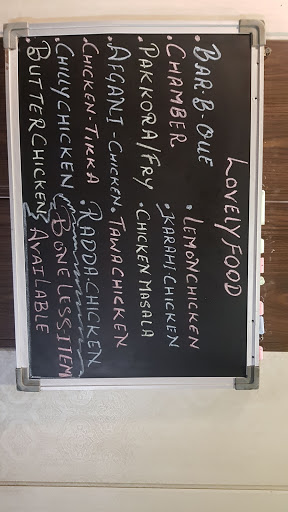 LOVELY FOOD
• BAR-B-QUE
• CHAMBER
• PAKKORA/FRY
• AFGANI-CHICKEN
CHICKEN-TIKKA
• CHILLYCHICKEN
BUTTERCHICKEN
• LEMONCHICKEN
• KARAHI-CHICKEN
• CHICKEN MASALA
• TAWACHICKEN
• RADDA-CHICKEN
BONELESS-ITEM
AVAILABLE